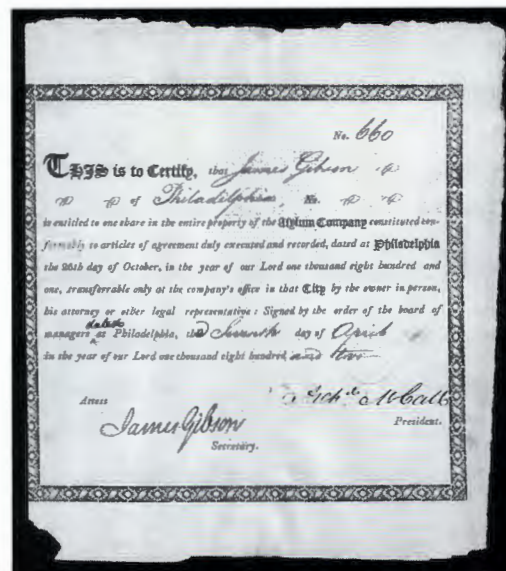 No. 660
THIS is to Certify, that James Gibson
of Philadelphia,
is entitled to one share in the entire property of the Asylum Company constituted con-
formably to articles of agreement duly executed and recorded, dated at Philadelphia
the 26th day of October, in the year of our Lord one thousand eight hundred and
one, transferrable only at the company's office in that City by the owner in person,
his attorney or other legal representative: Signed by the order of the board of
dated
managers at Philadelphia, the Seventh day of April
in the year of our Lord one thousand eight hundred and two
Attest
McCall
James Gibson
President.
Secretary.